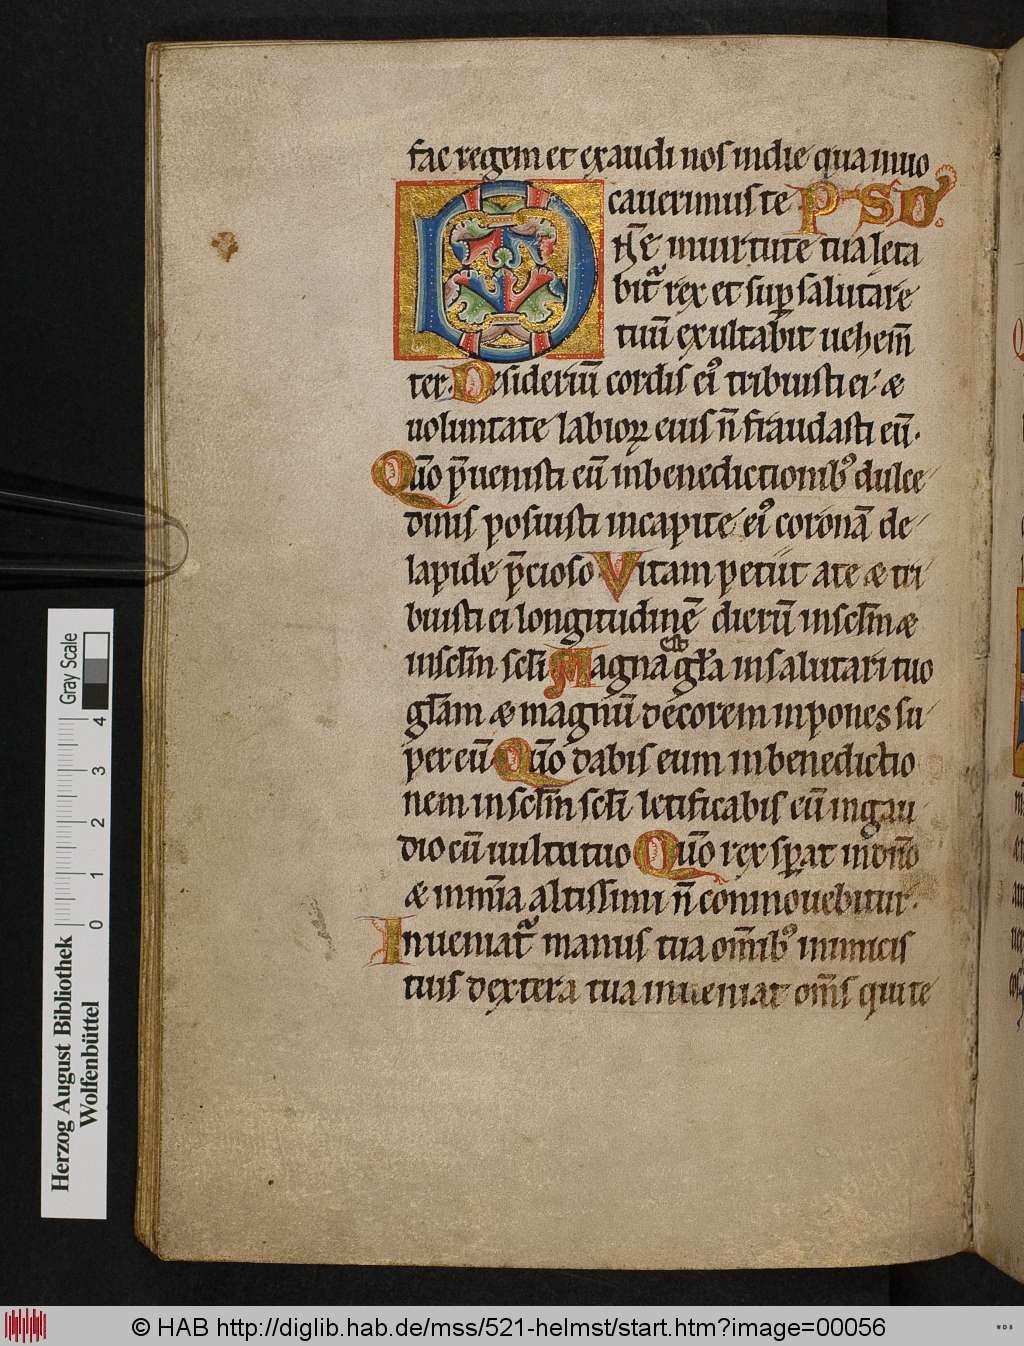 fac regem et exaudi nos in die qua inuo
cauerimus te P S D
D
Nē in uirtute tua leta
bit᷑ rex et sup salutare
tuū exultabit uehem̄
ter Desideriū cordis ei᾽ tribuisti ei · æ
uoluntate labioꝝ eius n̄ fraudasti eū ·
Qm̄o p̄uenisti eū in benedictionib᾽ dulce
dinis posuisti in capite ei᾽ coronā de
lapide p̄cioso Vitam petiit a te æ tri
buisti ei longitudinē dierū in scl̄m æ
in scl̄m scl̄i Magna ē gl̄a in salutari tuo
gl̄am æ magnū decorem inpones su
per eū Qm̄o dabis eum in benedictio
nem in scl̄m scl̄i letificabis eū in gau
dio cū uultu tuo Qm̄o rex sperat in dn̄o
æ in mīa altissimi n̄ conmouebitur ·
Inueniat᷑ manus tua om̄ib᾽ inimicis
tuis dextera tua inueniat om̄s qui te
Herzog August Bibliothek
Wolfenbüttel
0 1 2 3 4
Gray Scale
© HAB http://diglib.hab.de/mss/521-helmst/start.htm?image=00056